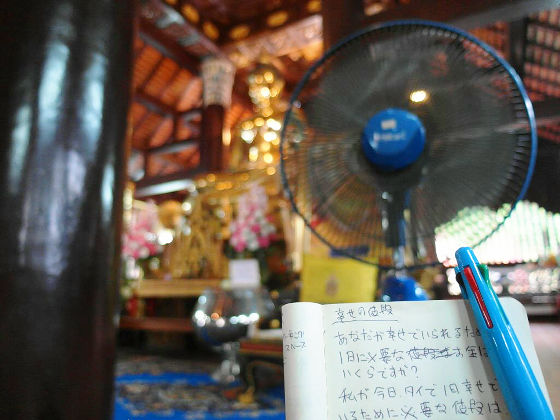 幸せの値段
あなたが幸せでいられるため
1日に必要なお金は
いくらですか?
私が今日、タイで1日幸せで
いるために必要な値段は